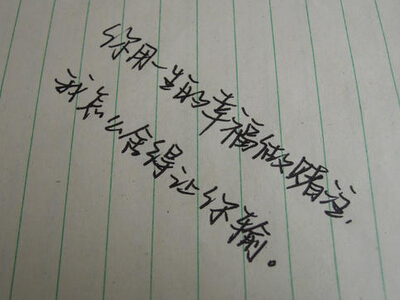 你用一生的幸福做赌注，
我怎么舍得让你输。